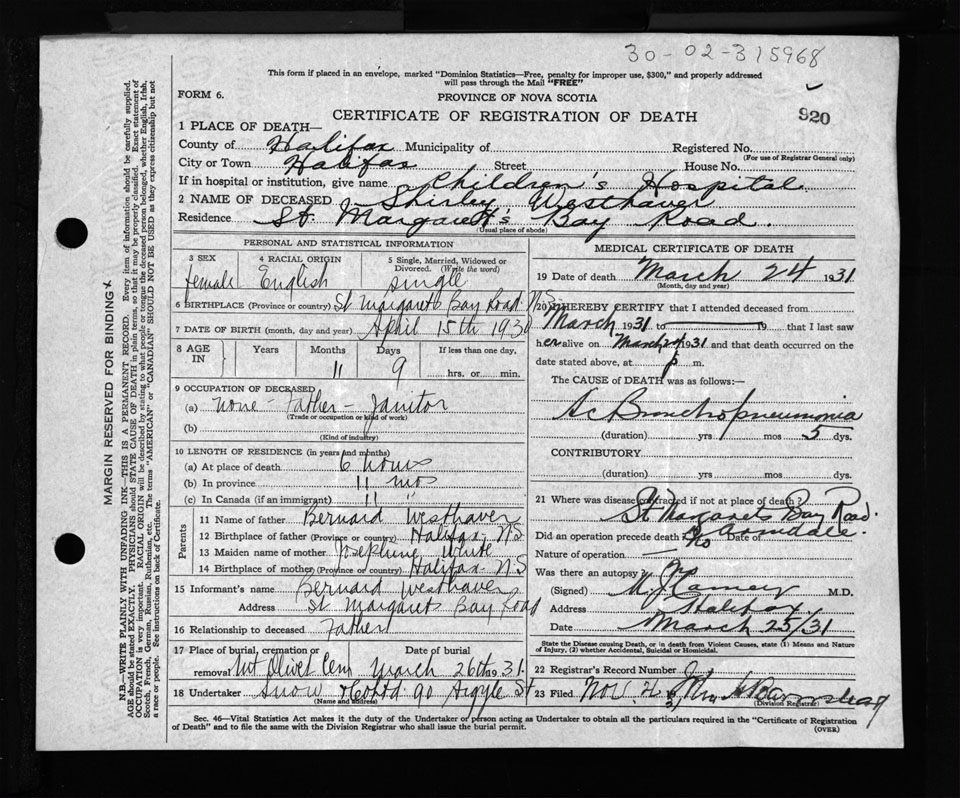 30-02-315968
This form if placed in an envelope, marked "Dominion Statistics—Free, penalty for improper use, $300," and properly addressed
will pass through the Mail "FREE"
FORM 6.
PROVINCE OF NOVA SCOTIA
920
CERTIFICATE OF REGISTRATION OF DEATH
1 PLACE OF DEATH—
County of Halifax Municipality of Registered No.
(For use of Registrar General only)
City or Town Halifax Street House No.
If in hospital or institution, give name Children's Hospital
2 NAME OF DECEASED Shirley Westhaver
Residence St. Margaret's Bay Road.
(Usual place of abode)
PERSONAL AND STATISTICAL INFORMATION
3 SEX 4 RACIAL ORIGIN 5 Single, Married, Widowed or Divorced. (Write the word)
female English single
6 BIRTHPLACE (Province or country) St Margarets Bay Road N.S.
7 DATE OF BIRTH (month, day and year) April 15th 1930
8 AGE IN Years Months Days If less than one day,
11 9 hrs. or min.
9 OCCUPATION OF DECEASED
(a) none - Father - Janitor
(Trade or occupation or kind of work)
(b)
(Kind of industry)
10 LENGTH OF RESIDENCE (in years and months)
(a) At place of death 6 hours
(b) In province 11 mos
(c) In Canada (if an immigrant) 11 "
Parents
11 Name of father Bernard Westhaver
12 Birthplace of father (Province or country) Halifax, N S
13 Maiden name of mother Josephine White
14 Birthplace of mother (Province or country) Halifax N S
15 Informant's name Bernard Westhaver
Address St Margarets Bay Road
16 Relationship to deceased Father
17 Place of burial, cremation or removal Date of burial
Mt Olivet Cem March 26th 1931
18 Undertaker Snow & Co Ltd 90 Argyle St
(Name and address)
MEDICAL CERTIFICATE OF DEATH
19 Date of death March 24 1931
(Month, day and year)
20 I HEREBY CERTIFY that I attended deceased from
March 1931 to 19 that I last saw
her alive on March 24 1931 and that death occurred on the
date stated above, at p m.
The CAUSE of DEATH was as follows:
Ac Bronchopneumonia
(duration) yrs mos 5 dys.
CONTRIBUTORY
(duration) yrs mos dys.
21 Where was disease contracted if not at place of death?
St Margarets Bay Road.
Armdale.
Did an operation precede death? No Date of
Nature of operation
Was there an autopsy? No
(Signed) M.D.
Address Halifax
Date March 25/31
State the Disease causing Death, or in death from Violent Causes, state (1) Means and Nature of Injury, (2) whether Accidental, Suicidal or Homicidal.
22 Registrar's Record Number
23 Filed Nov. 2 31 Mrs
(Division Registrar)
Sec. 46—Vital Statistics Act makes it the duty of the Undertaker or person acting as Undertaker to obtain all the particulars required in the "Certificate of Registration
of Death" and to file the same with the Division Registrar who shall issue the burial permit.
(OVER)
MARGIN RESERVED FOR BINDING
N.B.—WRITE PLAINLY WITH UNFADING INK—THIS IS A PERMANENT RECORD. Every item of information should be carefully supplied.
AGE should be stated EXACTLY. PHYSICIANS should STATE CAUSE OF DEATH in plain terms, so that it may be properly classified. Exact statement of
OCCUPATION is very important. RACIAL ORIGIN will be described by stating to what people or tongue the deceased person belonged, whether English, Irish,
Scotch, French, German, Russian, Ruthenian, etc. The terms "AMERICAN" or "CANADIAN" SHOULD NOT BE USED as they express citizenship but not
a race or people. See instructions on back of Certificate.